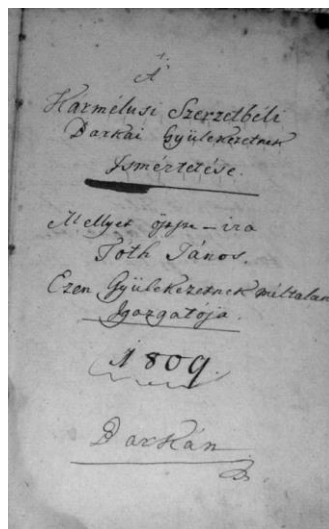 A
Karmélusi Szerzetbéli
Darkai Gyülekezetnek
Isméртetése.
Mellyet öszve-ira
Tóth János.
Ezen Gyülekezetnek méltatlan
Igazgatója.
1809.
Darkán